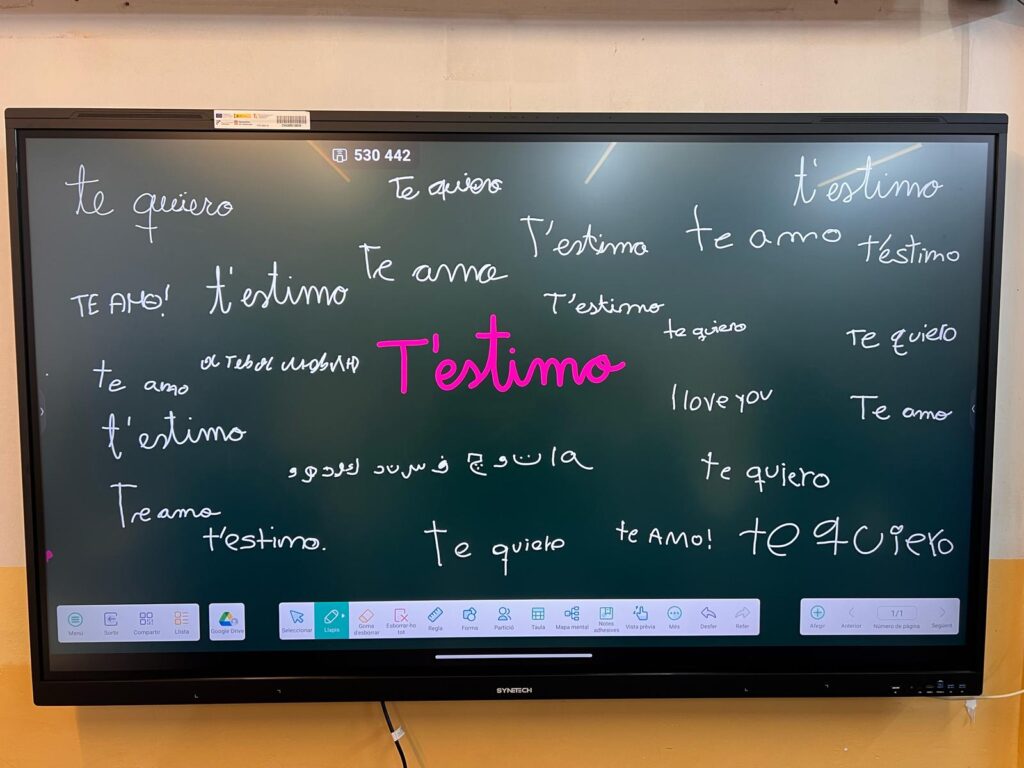 530 442
te quiero
Te quiero
t'estimo
T'estimo
te amo
t'estimo
Te amo
TE AMO!
t'estimo
T'estimo
te quiero
Te quiero
T'estimo
te amo
I love you
Te amo
t'estimo
te quiero
Te amo
t'estimo.
Te quiero
te AMO!
te quiero
Menú
Sortir
Compartir
Llista
Google Drive
Seleccionar
Llapis
Goma d'esborrar
Esborrar-ho tot
Regla
Forma
Partició
Taula
Mapa mental
Notes adhesives
Vista prèvia
Més
Desfer
Refer
Afegir
Anterior
1/1
Número de pàgina
Següent
SYNETECH